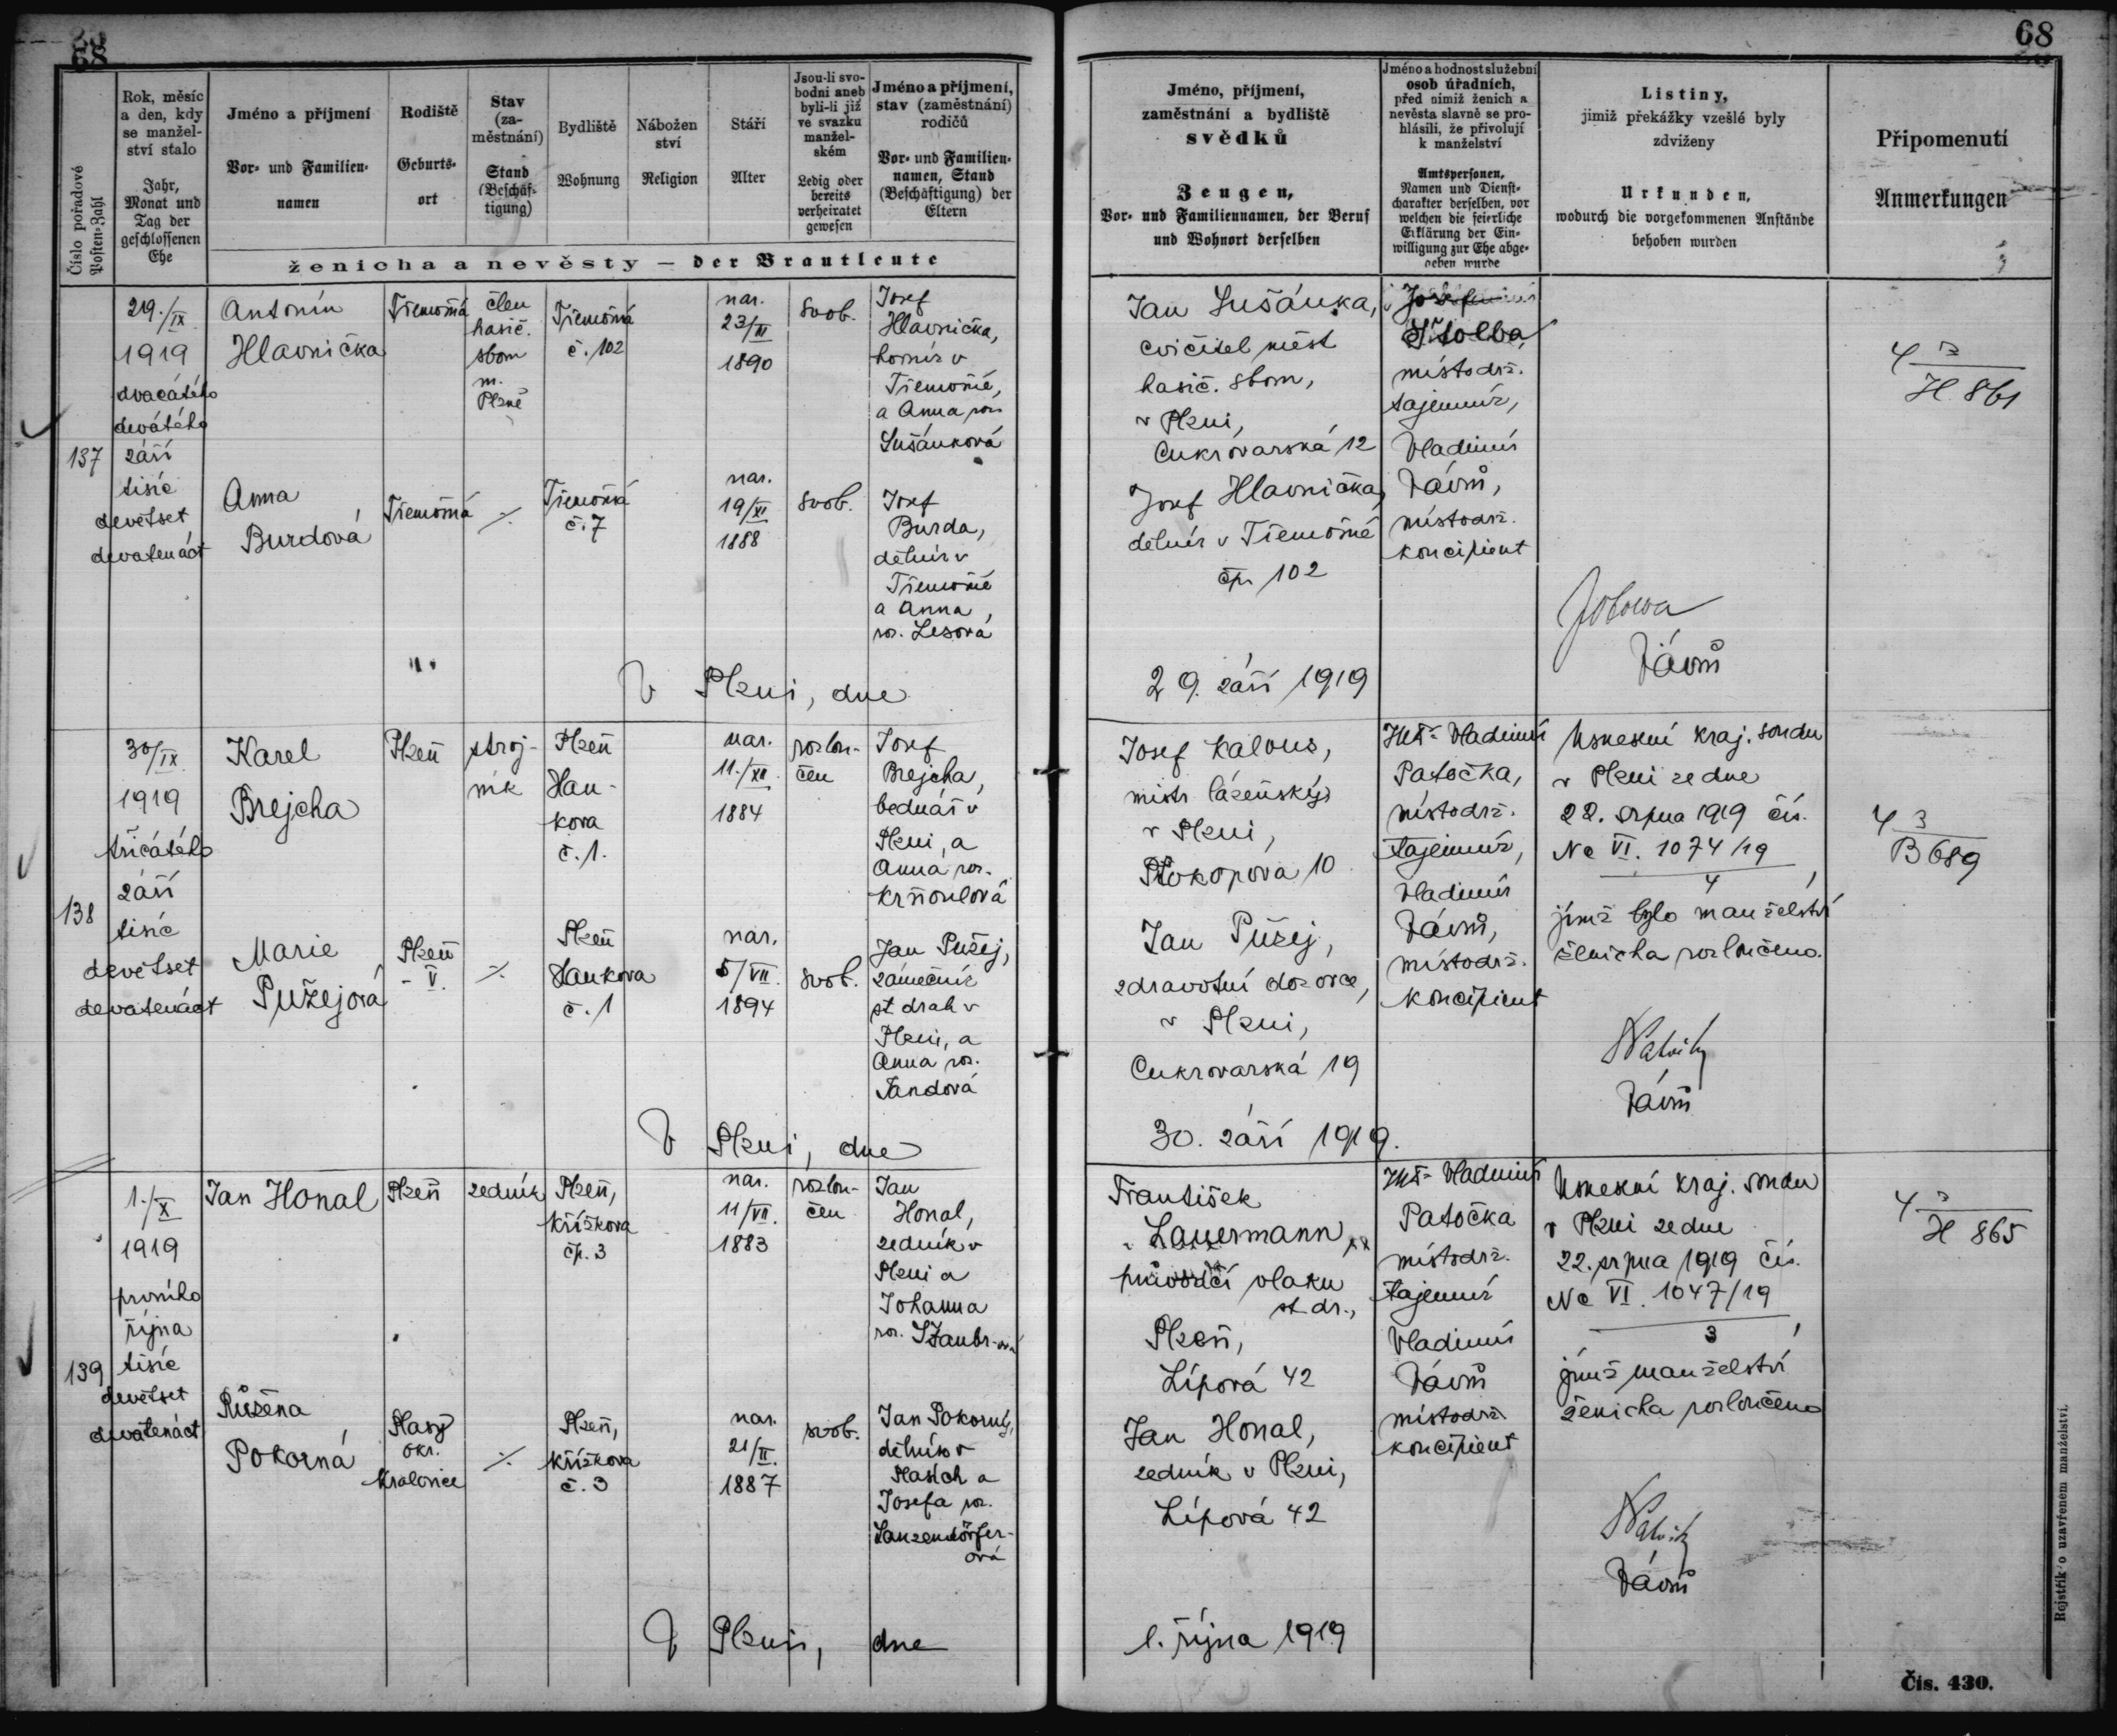 68
68
Číslo pořadové
Posten-Zahl
Rok, měsíc
a den, kdy
se manžel-
ství stalo
Jahr,
Monat und
Tag der
geschlossenen
Ehe
Jméno a příjmení
Vor- und Familien-
namen
Rodiště
Geburts-
ort
Stav
(za-
městnání)
Stand
(Beschäf-
tigung)
Bydliště
Wohnung
Nábožen
ství
Religion
Stáří
Alter
Jsou-li svo-
bodni aneb
byli-li již
ve svazku
manžel-
ském
Ledig oder
bereits
verheiratet
gewesen
Jméno a příjmení,
stav (zaměstnání)
rodičů
Vor- und Familien-
namen, Stand
(Beschäftigung) der
Eltern
ženicha a nevěsty — der Brautleute
Jméno, příjmení,
zaměstnání a bydliště
svědků
Zeugen,
Vor- und Familiennamen, der Beruf
und Wohnort derselben
Jméno a hodnost služební
osob úřadních,
před nimiž ženich a
nevěsta slavně se pro-
hlásili, že přivolují
k manželství
Amtspersonen,
Namen und Dienst-
charakter derselben, vor
welchen die feierliche
Erklärung der Ein-
willigung zur Ehe abge-
geben wurde
Listiny,
jimiž překážky vzešlé byly
zdviženy
Urkunden,
wodurch die vorgekommenen Anstände
behoben wurden
Připomenutí
Anmerkungen
137
29./IX
1919
dvacátého
devátého
září
tisíc
devětset
devatenáct
Antonín
Hlavnička
Třemošná
člen
hasič.
sboru
m.
Plzně
Třemošná
č. 102
nar.
23/III
1890
svob.
Josef
Hlavnička,
horník v
Třemošné,
a Anna roz.
Sušánková
Anna
Burdová
Třemošná
·/.
Třemošná
č. 7
nar.
19/XI
1888
svob.
Josef
Burda,
dělník v
Třemošné
a Anna,
roz. Lesová
V Plzni, dne
Jan Sušánka,
cvičitel měst
hasič. sboru,
v Plzni,
Cukrovarská 12
Josef Hlavnička,
dělník v Třemošné
čp. 102
29. září 1919
Josef
místodrž.
tajemník,
Vladimír
místodrž.
koncipient
4
H 861
138
30/IX
1919
třicátého
září
tisíc
devětset
devatenáct
Karel
Brejcha
Plzeň
stroj-
ník
Plzeň
Han-
kova
č. 1.
nar.
11./XII
1884
rozlou-
čen
Josef
Brejcha,
bednář v
Plzni, a
Anna roz.
Krňoulová
Marie
Pužejová
Plzeň
- V.
·/.
Plzeň
Hankova
č. 1
nar.
5/VII.
1894
svob.
Jan Pužej,
zámečník
st drah v
Plzni, a
Anna roz.
Tandová
V Plzni, dne
Josef Kalous,
mistr lázeňský
v Plzni,
Prokopova 10
Jan Pužej,
zdravotní dozorce,
v Plzni,
Cukrovarská 19
30. září 1919.
Vladimír
Patočka,
místodrž.
tajemník,
Vladimír
místodrž.
koncipient
Usnesení kraj. soudu
v Plzni ze dne
22. srpna 1919 čís.
Nc VI. 1074/19
4
jímž bylo manželství
ženicha rozloučeno.
4 3
B 689
139
1./X
1919
prvního
října
tisíc
devětset
devatenáct
Jan Honal
Plzeň
zedník
Plzeň,
Křížkova
čp. 3
nar.
11/VII.
1883
rozlou-
čen
Jan
Honal,
zedník v
Plzni a
Johanna
Růžena
Pokorná
Plasy
okr.
Kralovice
·/.
Plzeň,
Křížkova
č. 3
nar.
21/II.
1887
svob.
Jan Pokorný,
dělník v
Plasích a
Josefa roz.
Lanzendörfer-
ová
V Plzni, dne
František
Lauermann,
průvodčí vlaku
st. dr.,
Plzeň,
Lípová 42
Jan Honal,
zedník v Plzni,
Lípová 42
1. října 1919
Vladimír
Patočka
místodrž.
tajemník
Vladimír
místodrž.
koncipient
Usnesení kraj. soudu
v Plzni ze dne
22. srpna 1919 čís.
Nc VI. 1047/19
3
jímž manželství
ženicha rozloučeno
4
H 865
Rejstřík o uzavřenem manželství.
Čís. 430.